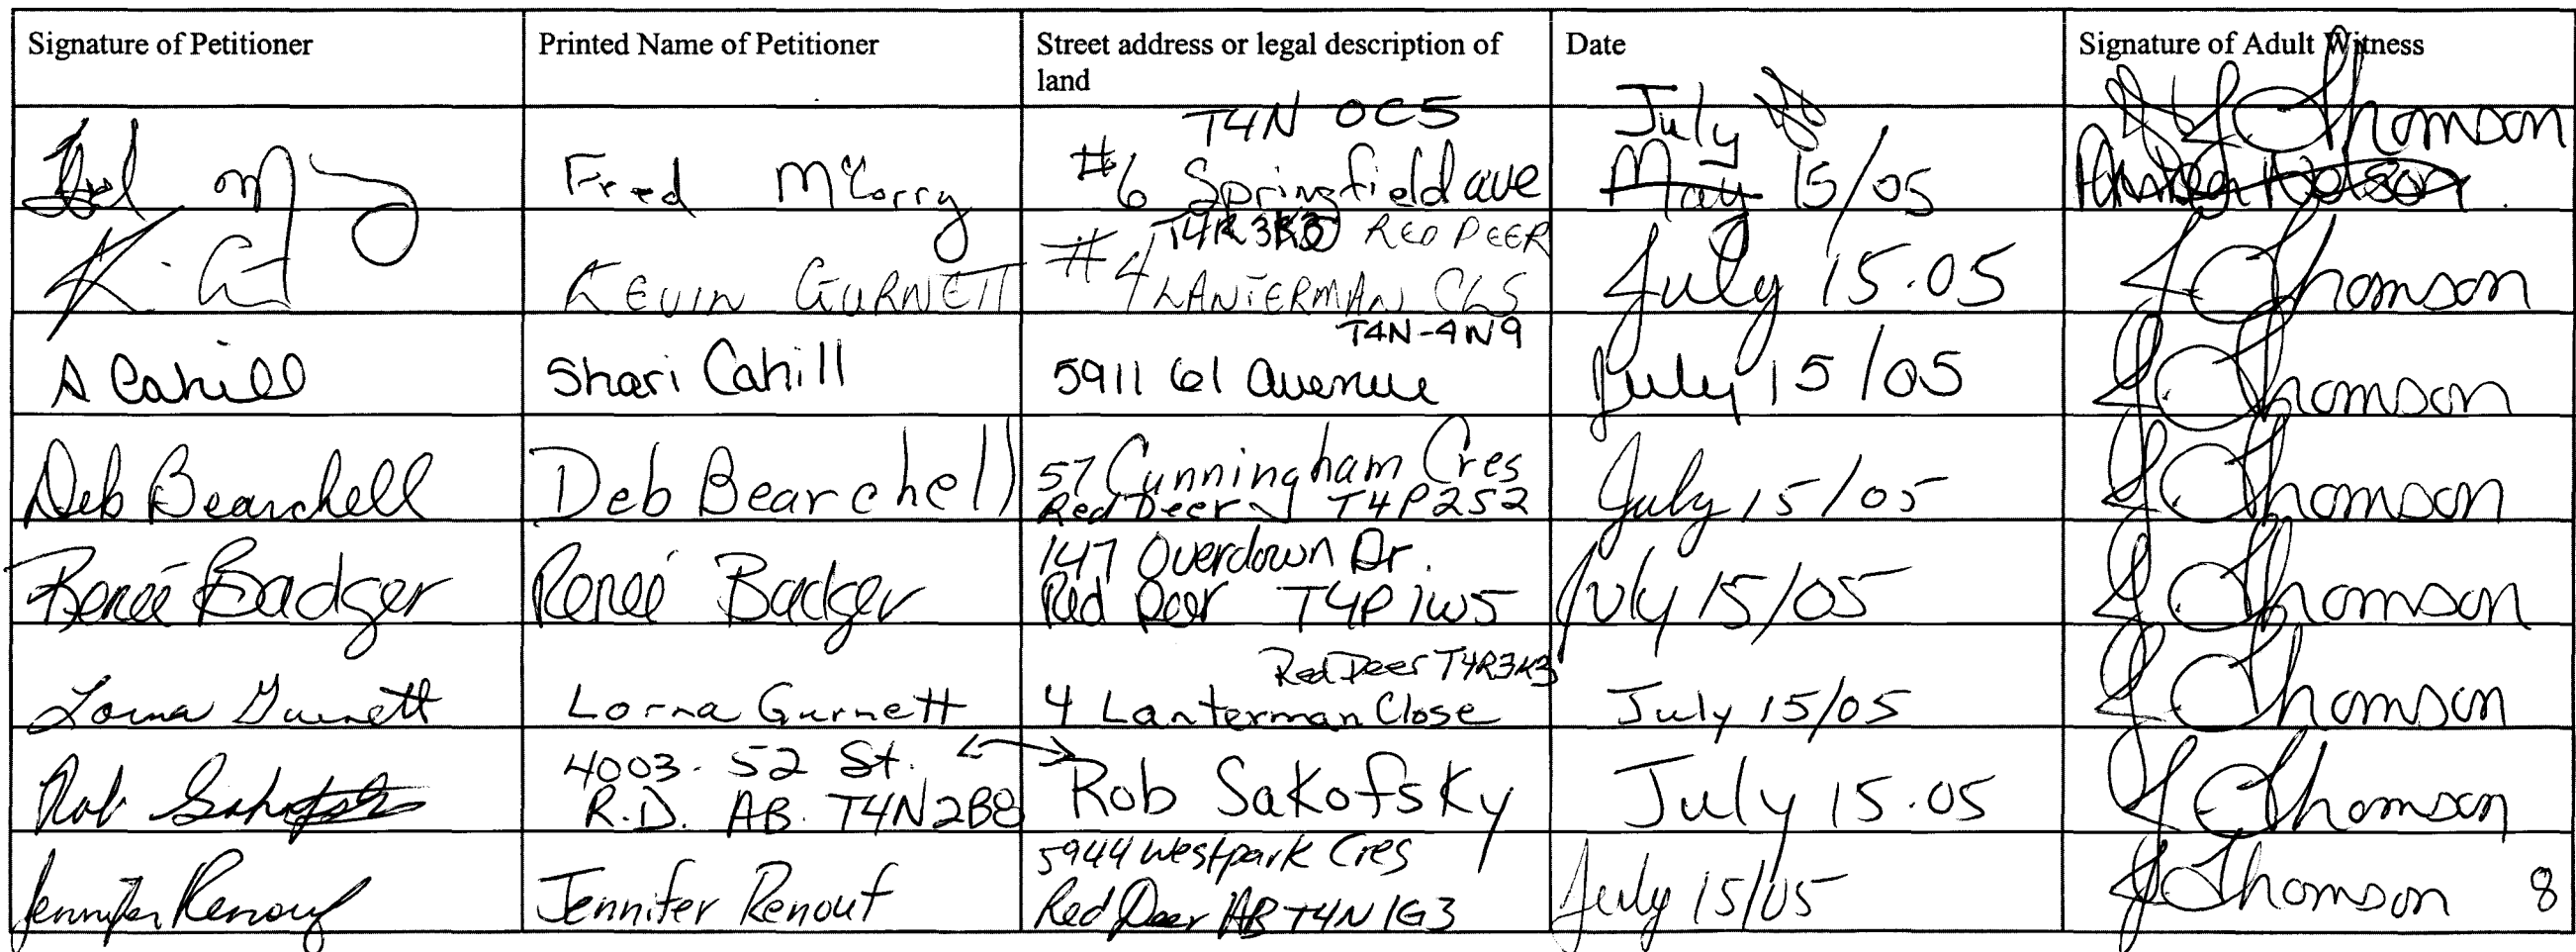 Signature of Petitioner
Printed Name of Petitioner
Street address or legal description of
land
Date
Signature of Adult Witness
Fred McCorry
T4N 0C5
#6 Springfield ave
July
May 15/05
Thomson
K. G
KEVIN GURNETT
T4R 3K3 RED DEER
#4 LANTERMAN CLS
July 15.05
Thomson
S Cahill
Shari Cahill
T4N-4N9
5911 61 Avenue
July 15/05
Thomson
Deb Bearchell
Deb Bearchell
57 Cunningham Cres
Red Deer T4P2S2
July 15/05
Thomson
Reneé Badger
Reneé Badger
147 Overdown Dr.
Red Deer T4P 1W5
July 15/05
Thomson
Lorna Gurnett
Lorna Gurnett
Red Deer T4R3K3
4 Lanterman Close
July 15/05
Thomson
Rob
4003. 52 St.
R.D. AB. T4N2B8
Rob Sakofsky
July 15.05
Thomson
Jennifer Renouf
Jennifer Renouf
5944 Westpark Cres
Red Deer AB T4N 1G3
July 15/05
Thomson
8